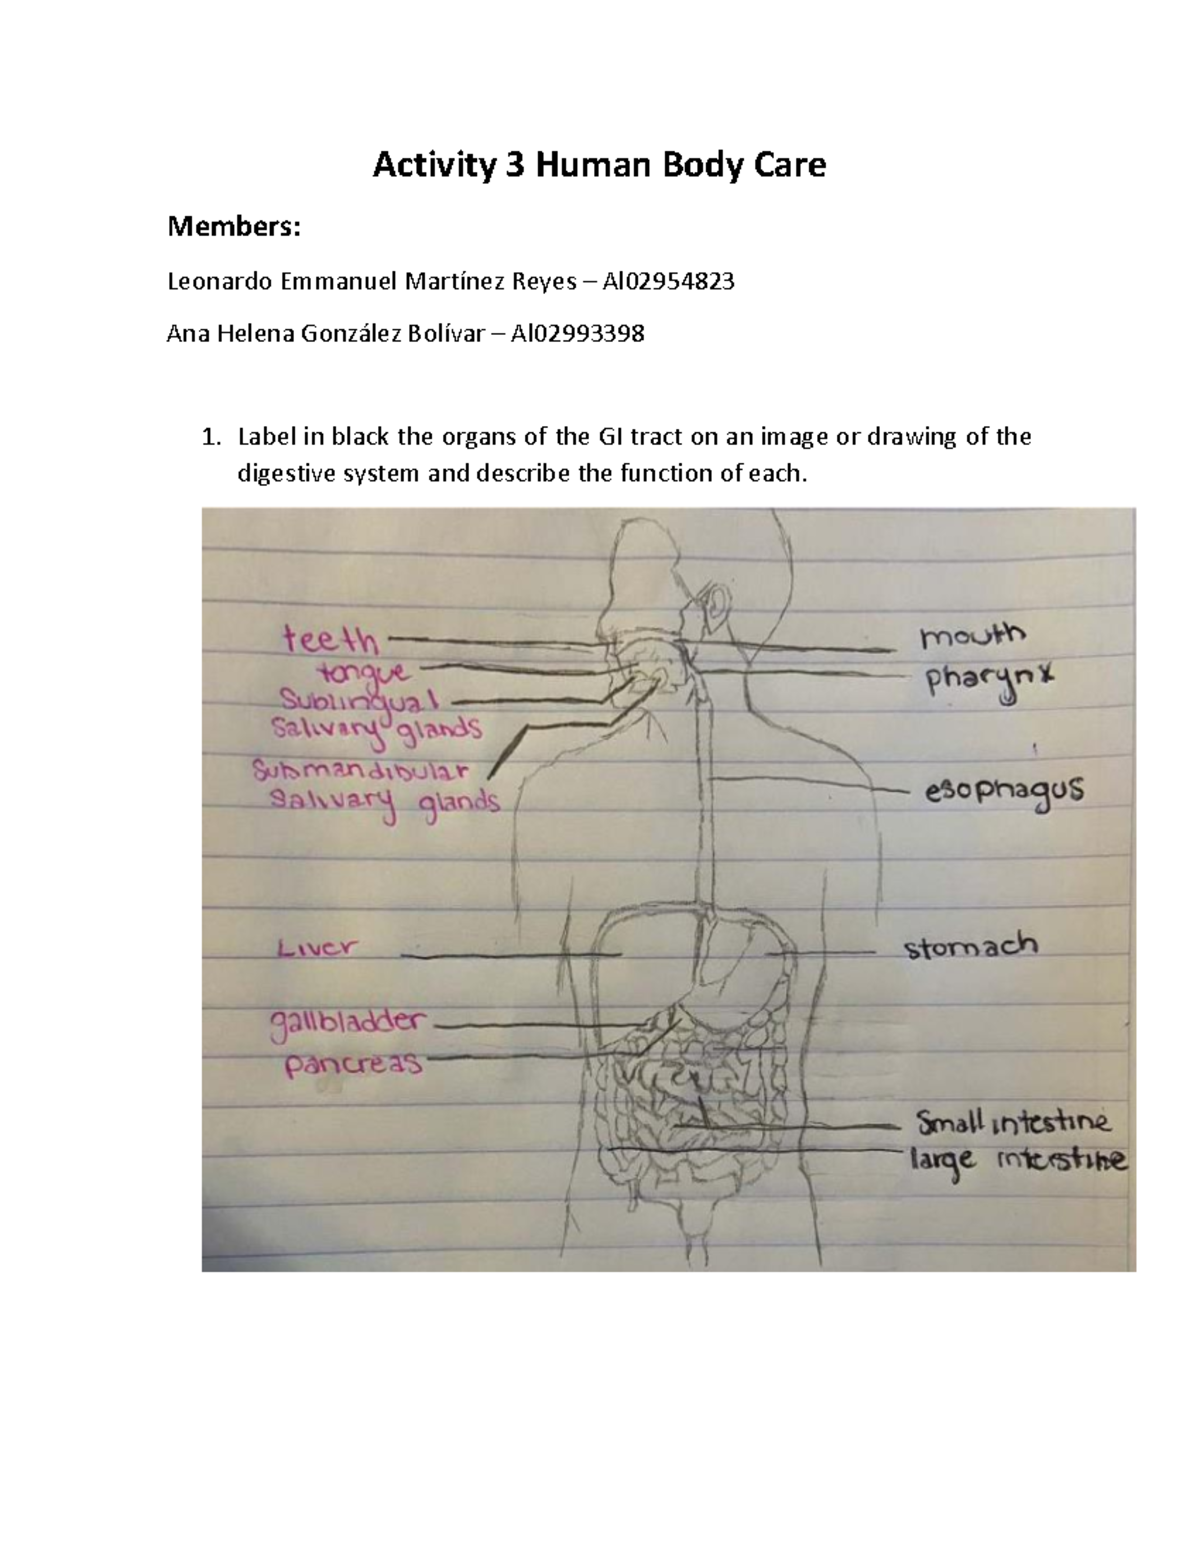 Activity 3 Human Body Care
Members:
Leonardo Emmanuel Martínez Reyes – Al02954823
Ana Helena González Bolívar – Al02993398
1. Label in black the organs of the GI tract on an image or drawing of the
digestive system and describe the function of each.
teeth
mouth
tongue
pharynx
Sublingual
Salivary glands
Submandibular
Salivary glands
esophagus
Liver
stomach
gallbladder
pancreas
Small intestine
large interstine